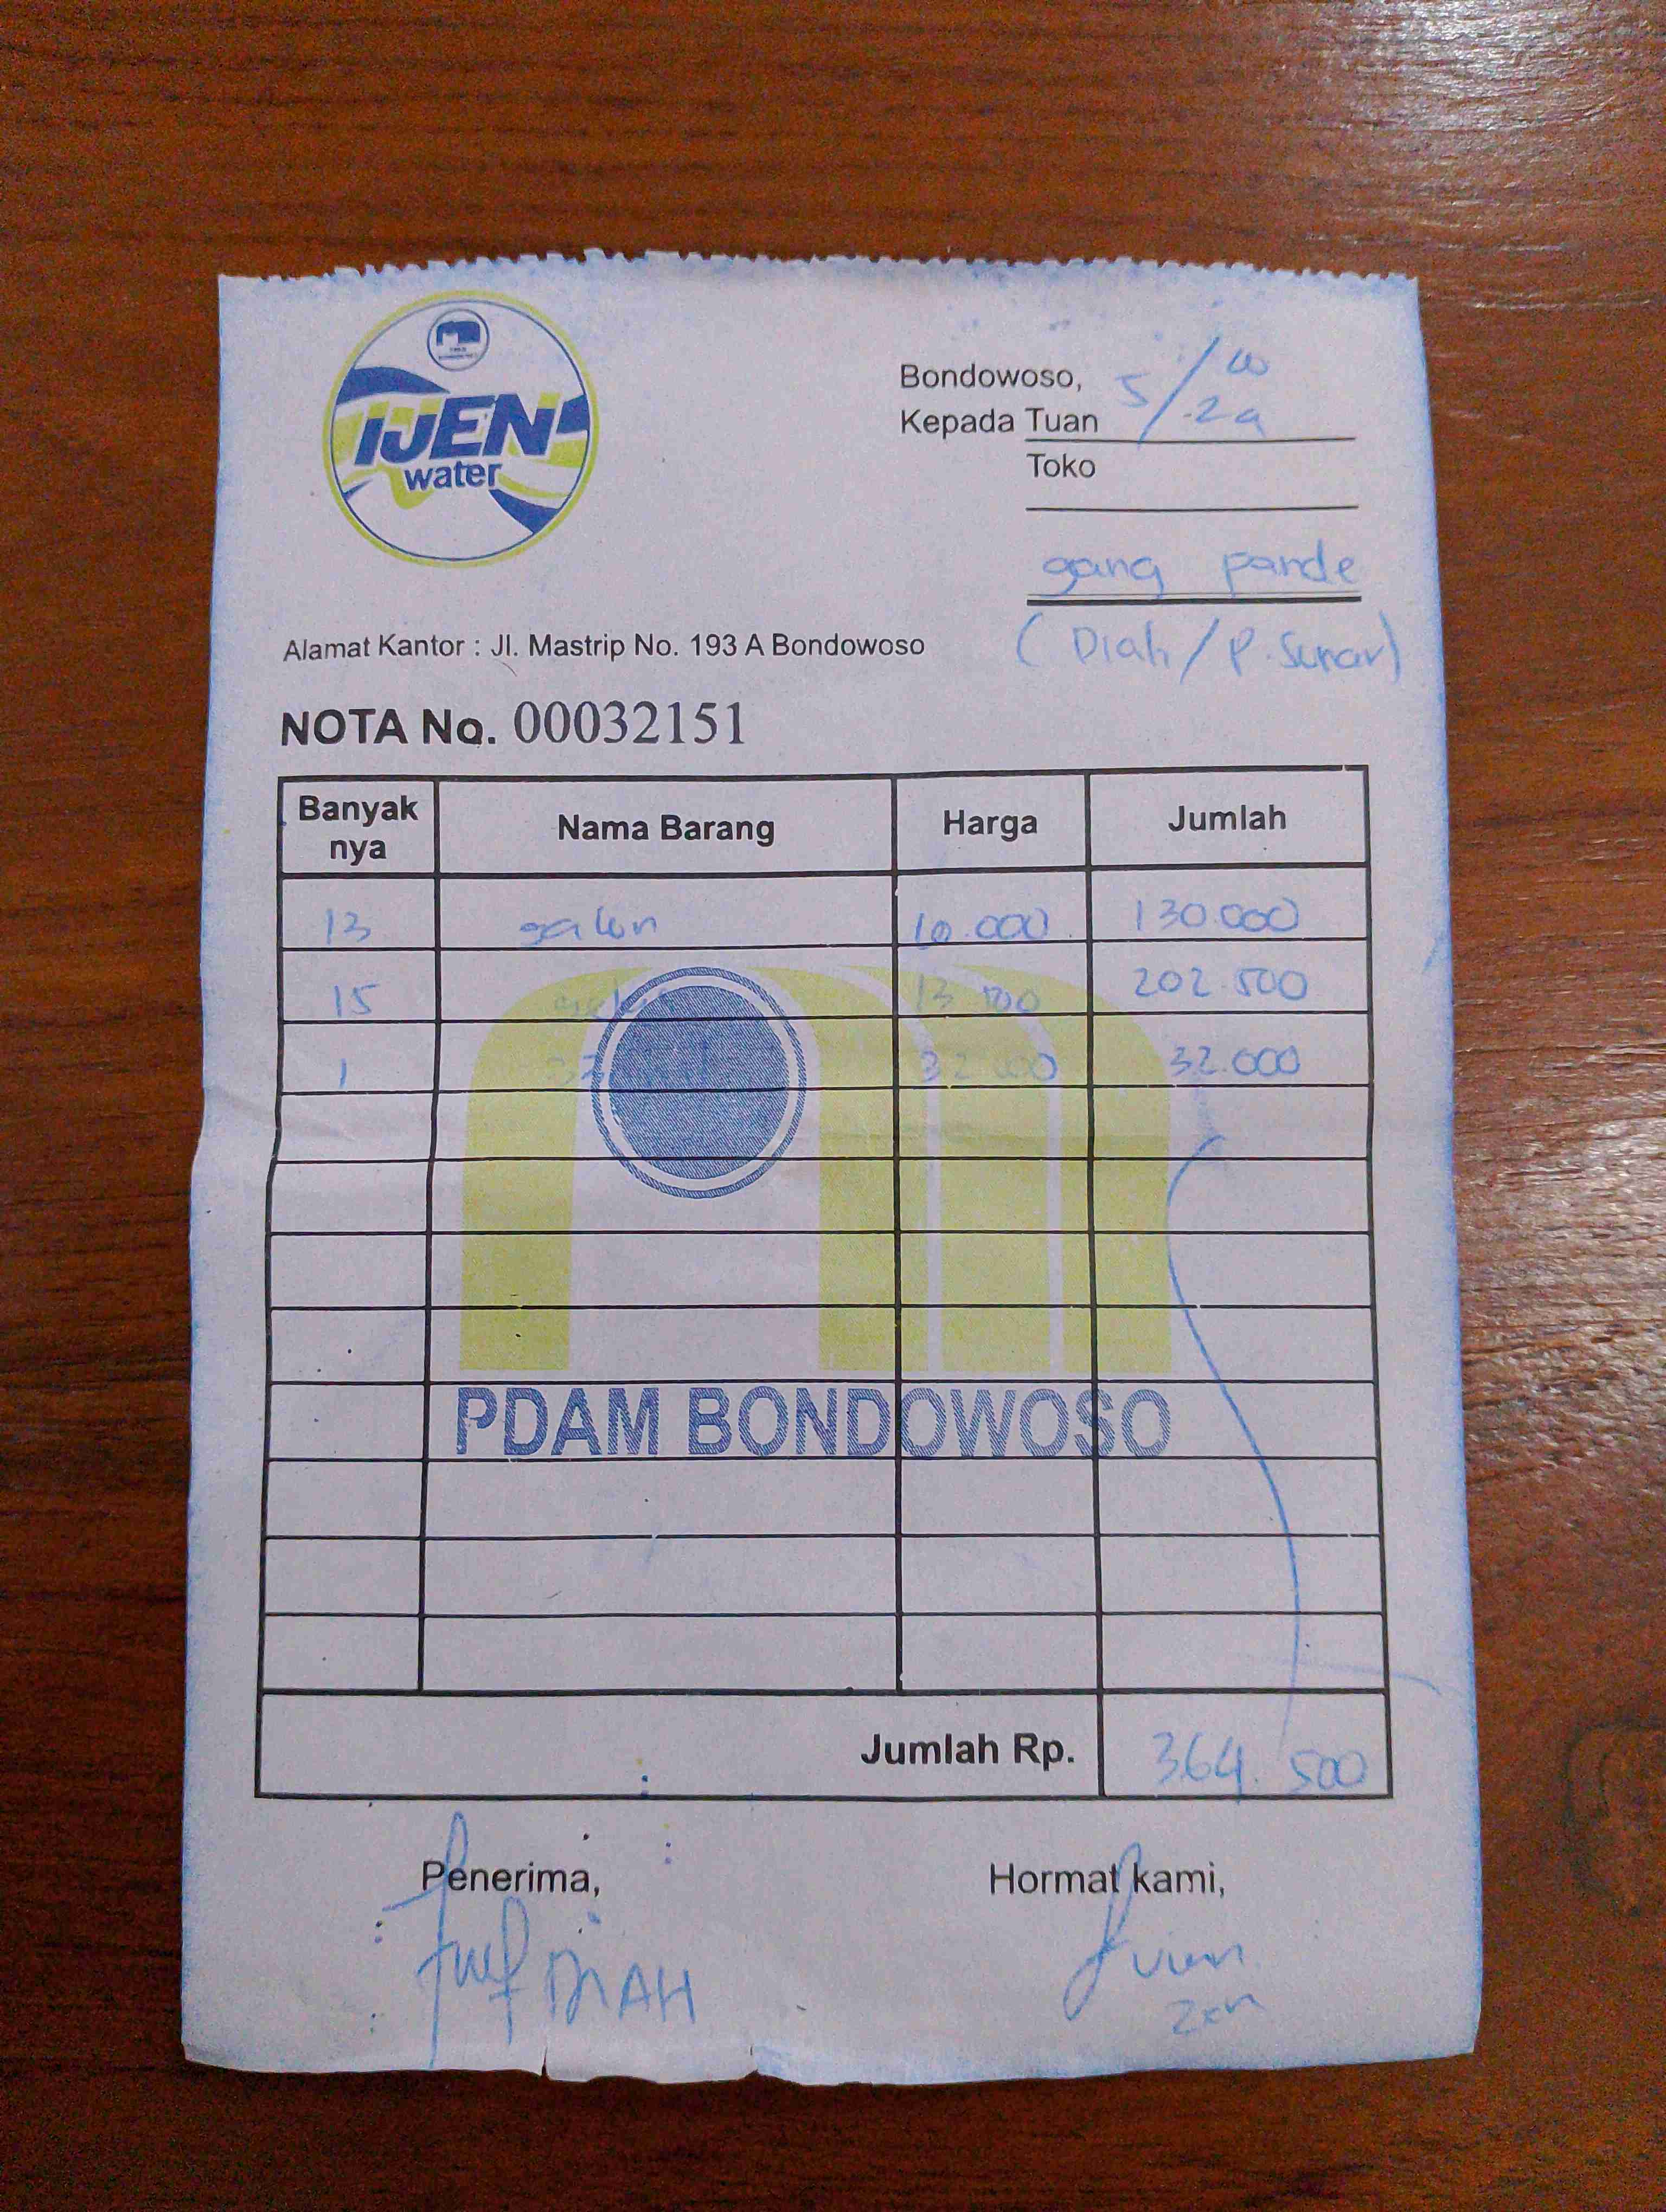 IJEN
water
Bondowoso,
5/
Kepada Tuan
Toko
gang pande
(Diah / P. Sunar)
Alamat Kantor : Jl. Mastrip No. 193 A Bondowoso
NOTA No. 00032151
Banyak nya Nama Barang Harga Jumlah
13 galon 10.000 130.000
15 galon 13.500 202.500
1 32.000 32.000
PDAM BONDOWOSO
Jumlah Rp. 364.500
Penerima, Hormat kami,
DIAH